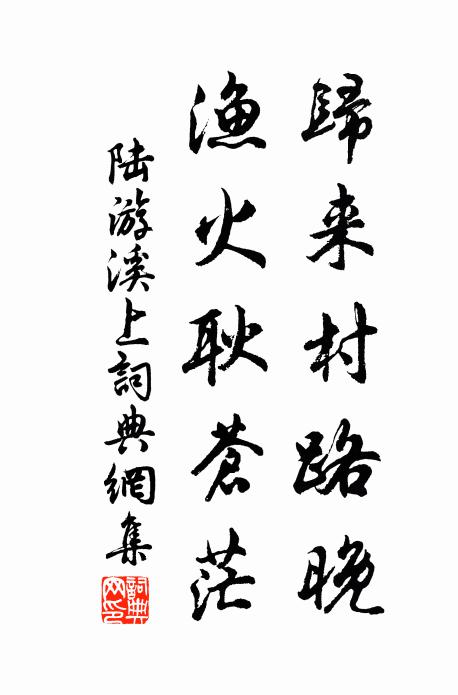 歸来村路晚
漁火耿蒼茫
陆游溪上詞典網集
詞典网印